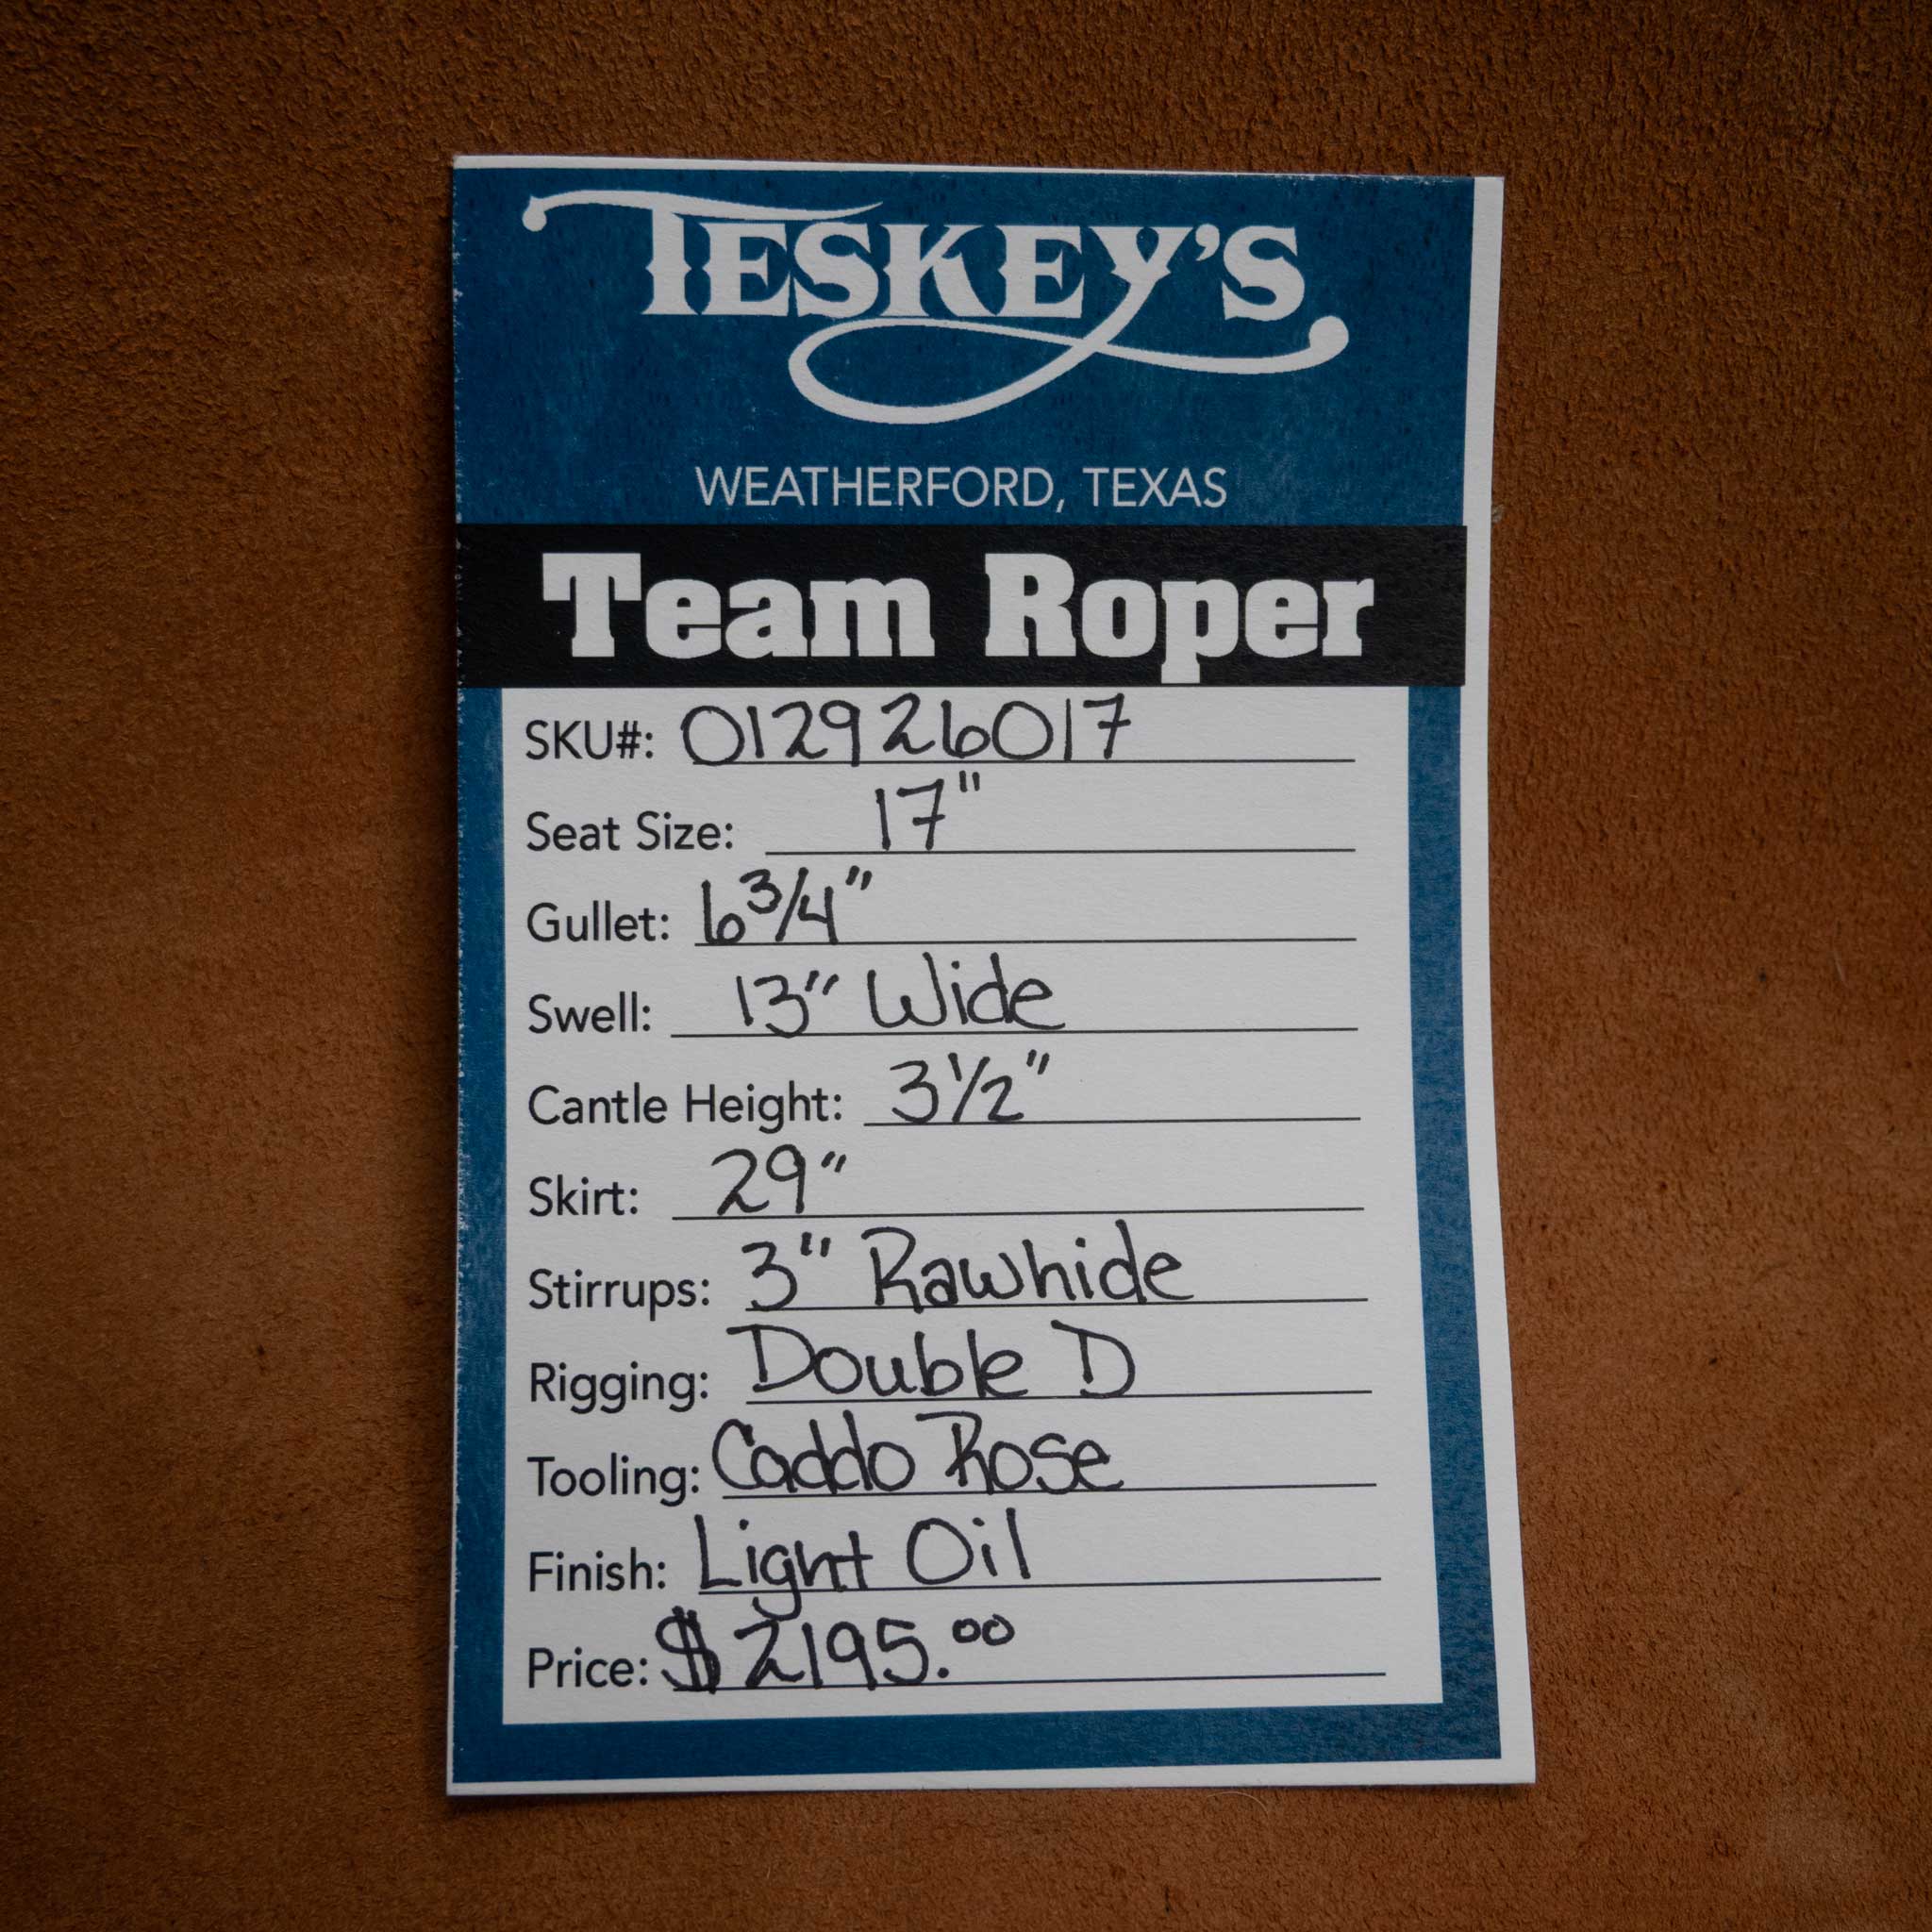 TESKEY'S
WEATHERFORD, TEXAS
Team Roper
SKU#: 012926017
Seat Size: 17"
Gullet: 6 3/4"
Swell: 13" Wide
Cantle Height: 3 1/2"
Skirt: 29"
Stirrups: 3" Rawhide
Rigging: Double D
Tooling: Caddo Rose
Finish: Light Oil
Price: $2195.00